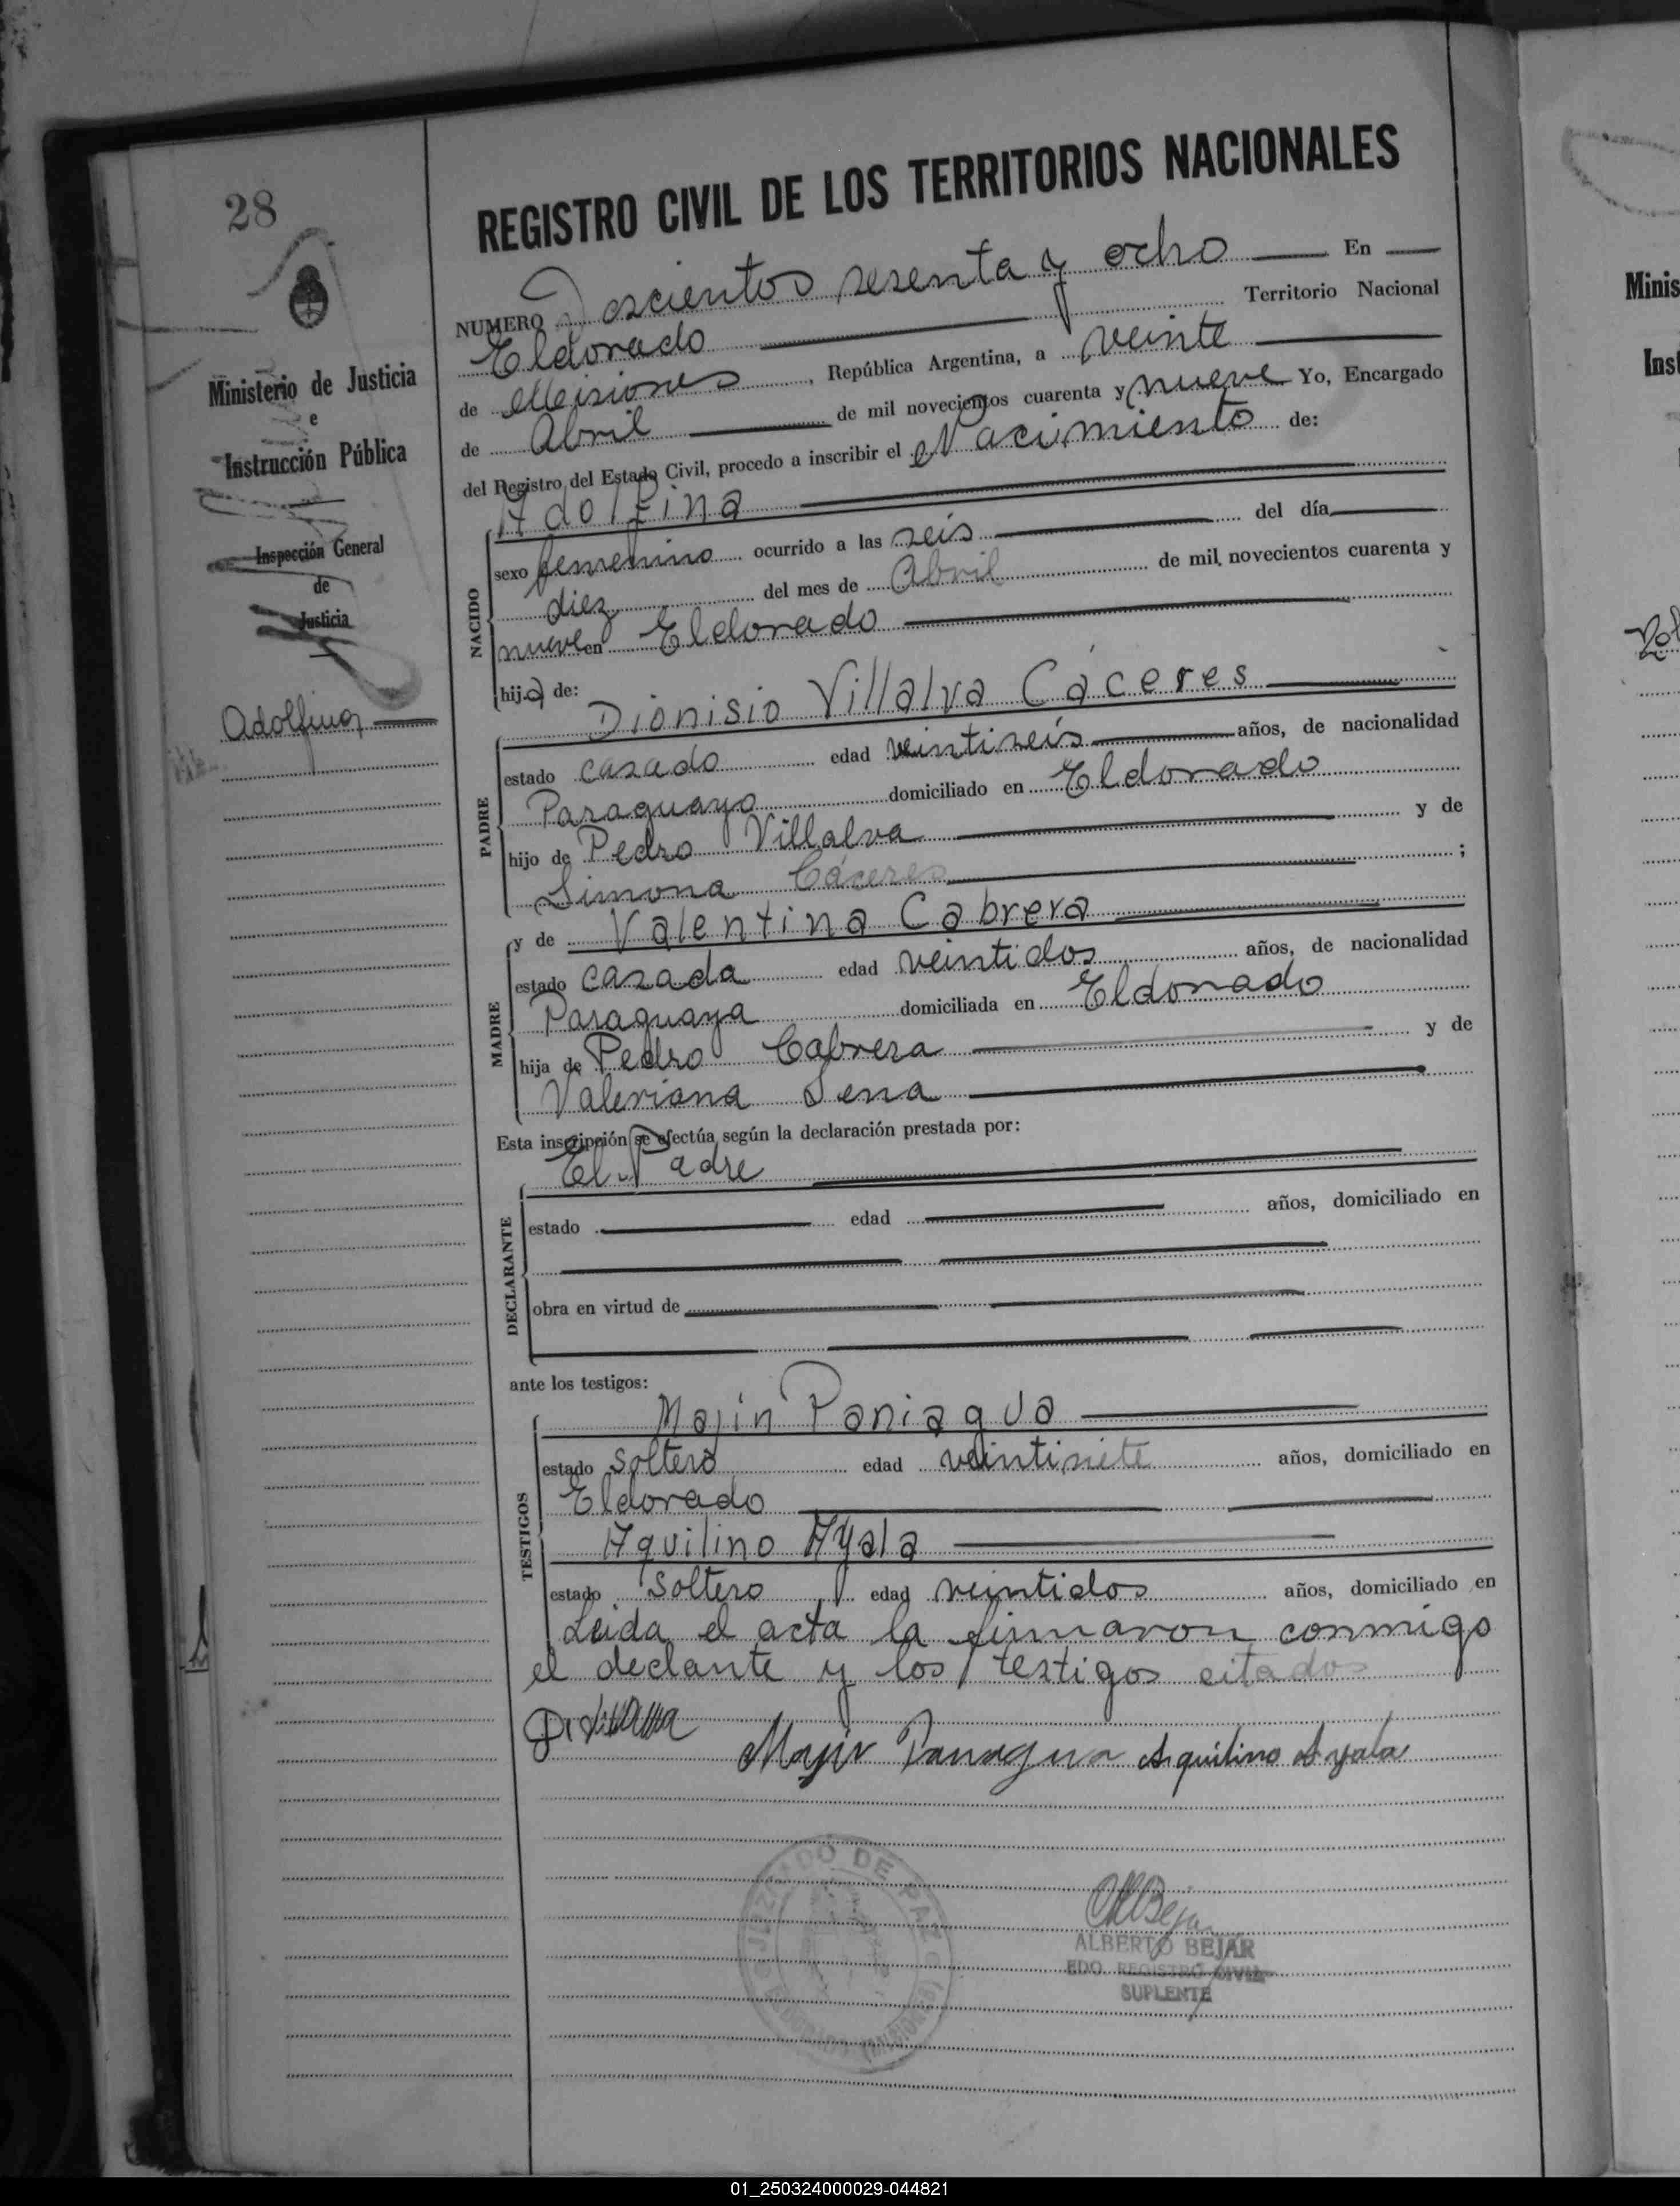 28
REGISTRO CIVIL DE LOS TERRITORIOS NACIONALES
NUMERO Doscientos sesenta y ocho En
Eldorado Territorio Nacional
de Misiones, República Argentina, a veinte
de Abril de mil novecientos cuarenta y nueve Yo, Encargado
del Registro del Estado Civil, procedo a inscribir el Nacimiento de:
Ministerio de Justicia
e
Instrucción Pública
Inspección General
de
Justicia
Adolfina
NACIDO
Adolfina
sexo femenino ocurrido a las seis del día
diez del mes de Abril de mil novecientos cuarenta y
nueve en Eldorado
hija de:
PADRE
Dionisio Villalva Cáceres
estado casado edad veintiseis años, de nacionalidad
Paraguayo domiciliado en Eldorado
hijo de Pedro Villalva y de
Simona Cáceres ;
MADRE
y de Valentina Cabrera
estado casada edad veintidos años, de nacionalidad
Paraguaya domiciliada en Eldorado
hija de Pedro Cabrera y de
Valeriana Sena
Esta inscripción se efectúa según la declaración prestada por:
DECLARANTE
El Padre
estado edad años, domiciliado en
obra en virtud de
ante los testigos:
TESTIGOS
Majin Paniagua
estado soltero edad veintisiete años, domiciliado en
Eldorado
Aquilino Ayala
estado soltero edad veintidos años, domiciliado en
Leida el acta la firmaron conmigo
el declante y los testigos citados
Majin Paniagua Aquilino Ayala
JUZGADO DE PAZ
ALBERTO BEJAR
EDO. REGISTRO CIVIL
SUPLENTE
Minis
Inst
01_250324000029-044821